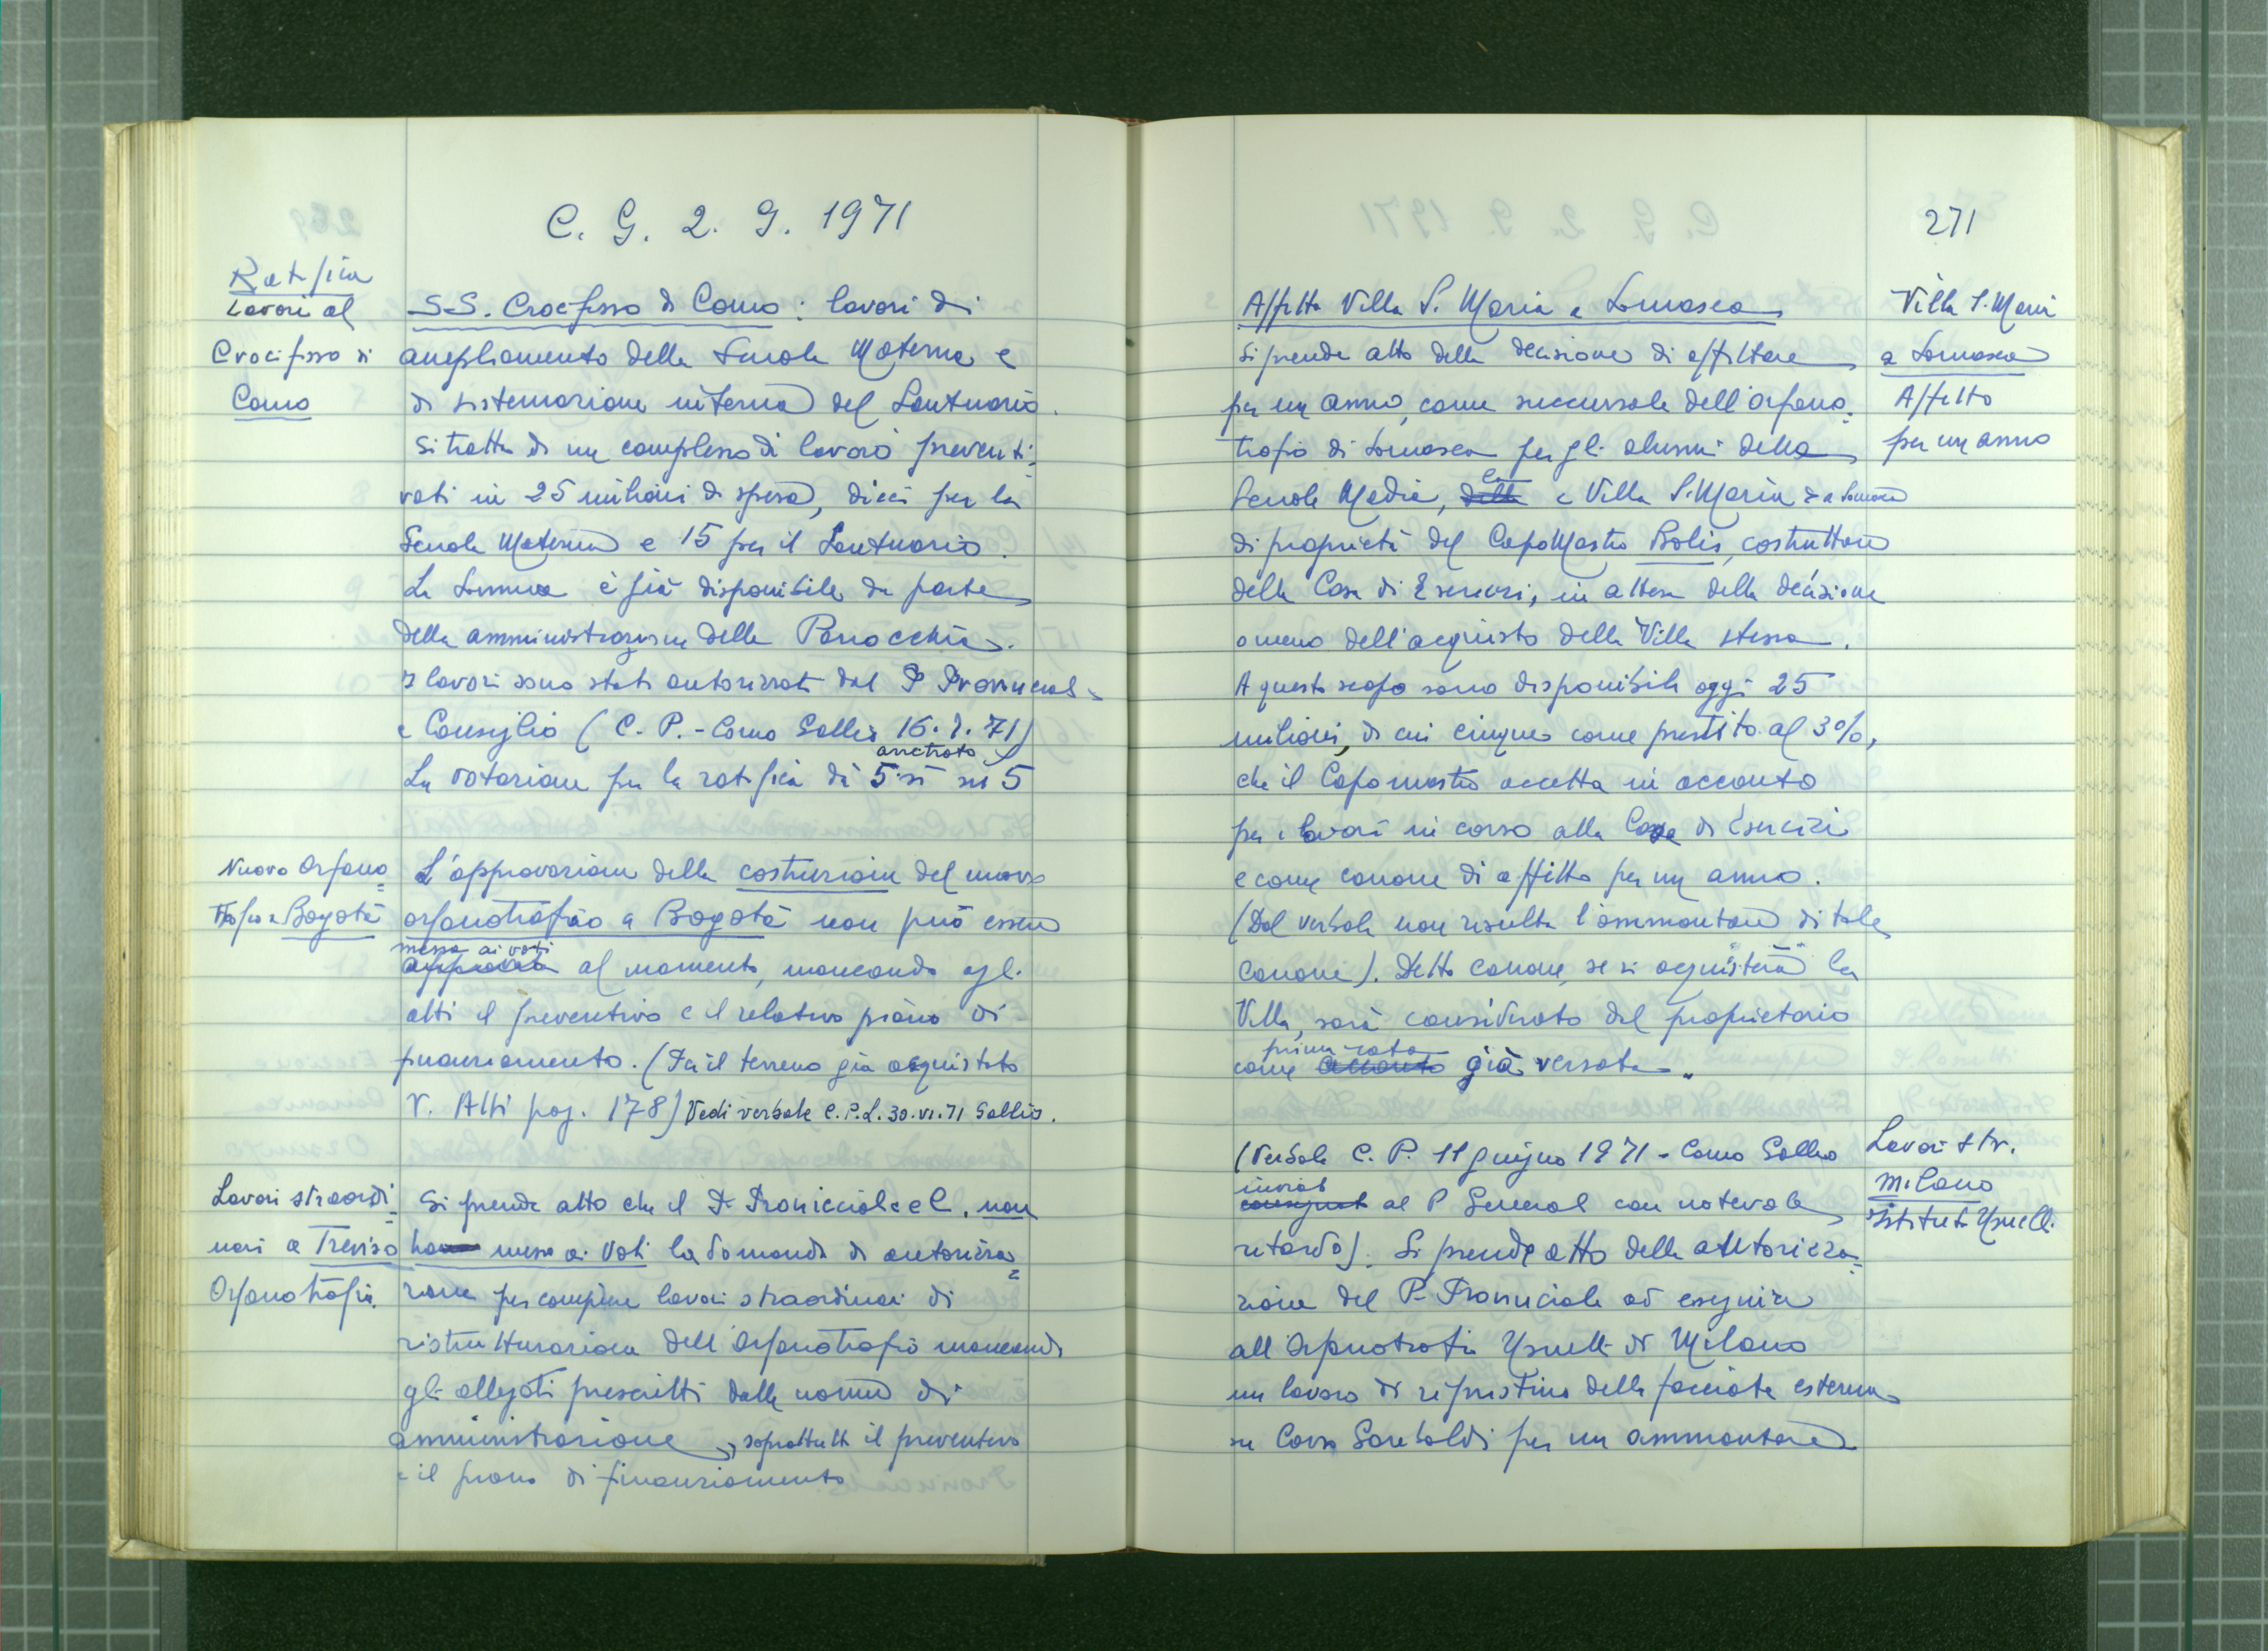 C. G. 2. 9. 1971
Ratifica
Lavori al
Crocifisso di
Como
SS. Crocifisso di Como: lavori di
ampliamento della Scuola Materna e
di sistemazione interna del Santuario.
Si tratta di un complesso di lavori preventi=
vati in 25 milioni di spesa, dieci per la
Scuola Materna e 15 per il Santuario.
La somma è già disponibile da parte
della amministrazione della Parrocchia.
I lavori sono stati autorizzati dal P. Provinciale
e Consiglio (C. P. - Como Gallio 16. 7. 71)
La votazione per la ratifica dà 5 sì su 5
Nuovo Orfano=
trofio a Bogotà
L'approvazione della costruzione del nuovo
orfanotrofio a Bogotà non può essere
messa ai voti
approvata al momento, mancando agli
atti il preventivo e il relativo piano di
finanziamento. (Fu il terreno già acquistato
V. Atti pag. 178) Vedi verbale C.P.L. 30.VI.71 Gallio.
Lavori straordi=
nari a Treviso
Orfanotrofio
Si prende atto che il P. Provinciale e C. non
ha messo ai voti la domanda di autorizza=
zione per compiere lavori straordinari di
ristrutturazione dell'Orfanotrofio mancando
gli allegati prescritti dalle norme di
amministrazione, soprattutto il preventivo
e il piano di finanziamento
271
Villa S. Maria
a Somasca
Affitto
per un anno
Affitto Villa S. Maria a Somasca
Si prende atto della decisione di affittare
per un anno, come succursale dell'orfano=
trofio di Somasca per gli alunni della
Scuola Media, la
Villa S. Maria a Somasca
di proprietà del CapoMastro Bolis, costruttore
della Casa di Esercizi, in attesa della decisione
o meno dell'acquisto della Villa stessa.
A questo scopo sono disponibili oggi 25
milioni, di cui cinque come prestito al 3%,
che il Capomastro accetta in acconto
per i lavori in corso alla Casa di Esercizi
e come canone di affitto per un anno.
(Dal verbale non risulta l'ammontare di tale
canone). Detto canone, se si acquisterà la
Villa, sarà considerato dal proprietario
prima rata
come acconto già versata."
Lavori str.
Milano
Istituto Usuelli
(Verbale C. P. 11 giugno 1971 - Como Gallio
inviato
consegnato al P. Generale con notevole
ritardo). Si prende atto della autorizza=
zione del P. Provinciale ad eseguire
all'Orfanotrofio Usuelli di Milano
un lavoro di ripristino della facciata esterna
su Corso Garibaldi per un ammontare